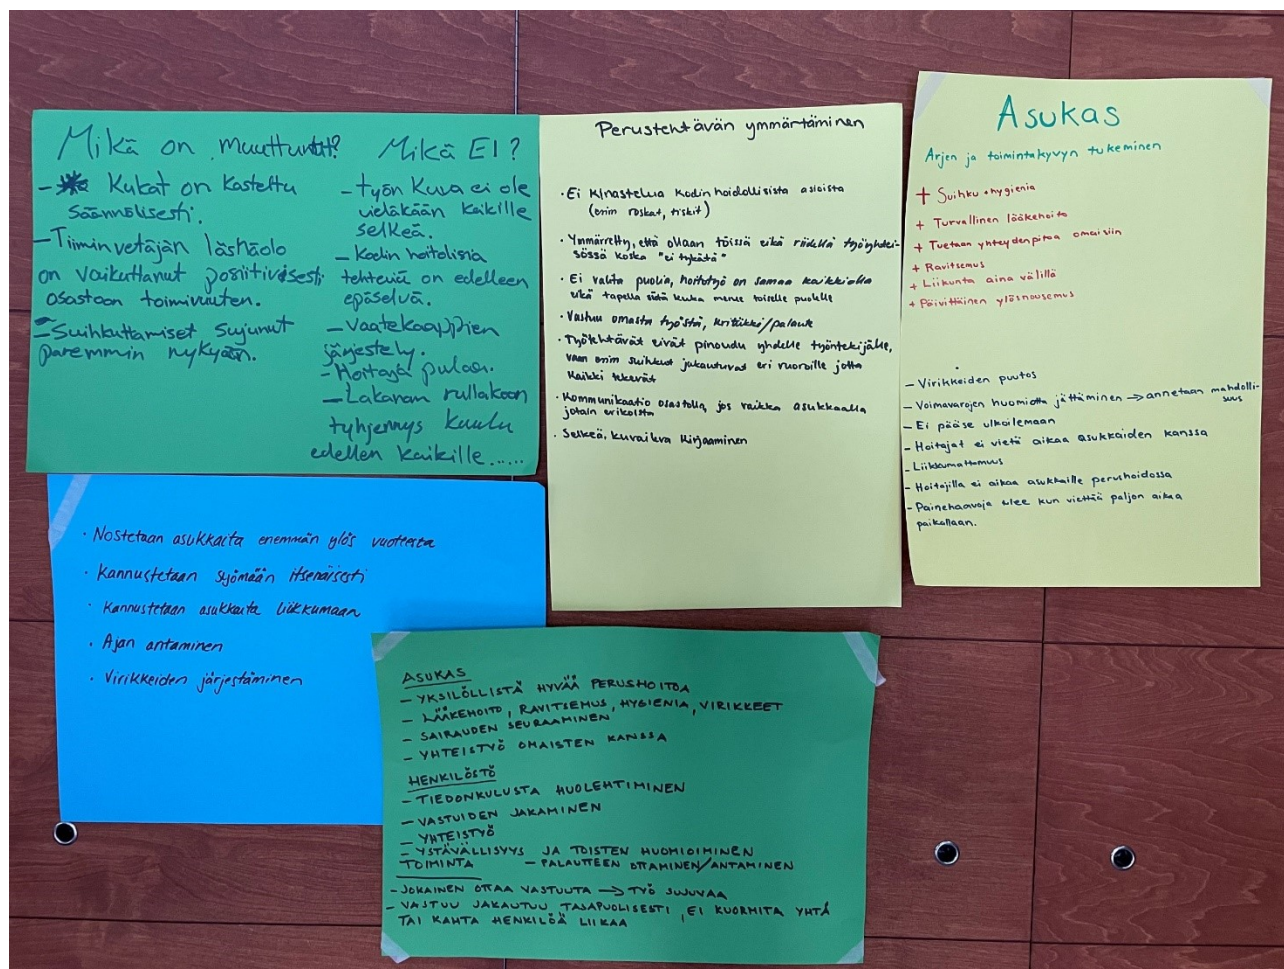 Mikä on muuttunut?
- Kukat on kasteltu
säännölisesti.
- Tiiminvetäjän läsnäolo
on vaikuttanut positiivisesti
osastoon toimivuuten.
- Suihkuttamiset sujunut
paremmin nykyään.
Mikä EI?
- työn kuva ei ole
vieläkään kaikille
selkeä.
- Kodin hoitolisia
tehteviä on edelleen
epäselvä.
- Vaatekaappien
järjestely.
- Hoitajia puloon.
- Lakanan rullakoon
tyhjennys kuulu
edellen kaikille.....
Perustehtävän ymmärtäminen
· Ei kinastelua kodinhoidollisista asioista
(esim roskat, tiskit)
· Ymmärretty, että ollaan töissä eikä riidellä työyhtei-
sössä koska "ei tykätä"
· Ei valita puolia, hoitotyö on samaa kaikkialla
eikä tapella siitä kuka menee toiselle puolelle
· Vastuu omasta työstä, kritiikki/palaute
· Työtehtävät eivät pinoudu yhdelle työntekijälle,
vaan esim suihkut jakautuvat eri vuoroille jotta
kaikki tekevät
· Kommunikaatio osastolla, jos vaikka asukkaalla
jotain erikoista
· Selkeä, kuvaileva kirjaaminen
Asukas
Arjen ja toimintakyvyn tukeminen
+ Suihku + hygienia
+ Turvallinen lääkehoito
+ Tuetaan yhteydenpitoa omaisiin
+ Ravitsemus
+ Liikunta aina välillä
+ Päivittäinen ylösnousemus
- Virikkeiden puutos
- Voimavarojen huomiotta jättäminen → annetaan mahdolli-
suus
- Ei pääse ulkoilemaan
- Hoitajat ei vietä aikaa asukkaiden kanssa
- Liikkumattomuus
- Hoitajilla ei aikaa asukkaille perushoidossa
- Painehaavoja tulee kun viettää paljon aikaa
paikallaan.
· Nostetaan asukkaita enemmän ylös vuoteesta
· Kannustetaan syömään itsenäisesti
· Kannustetaan asukkaita liikkumaan
· Ajan antaminen
· Virikkeiden järjestäminen
ASUKAS
- YKSILÖLLISTÄ HYVÄÄ PERUSHOITOA
- LÄÄKEHOITO, RAVITSEMUS, HYGIENIA, VIRIKKEET
- SAIRAUDEN SEURAAMINEN
- YHTEISTYÖ OMAISTEN KANSSA
HENKILÖSTÖ
- TIEDONKULUSTA HUOLEHTIMINEN
- VASTUIDEN JAKAMINEN
- YHTEISTYÖ
- YSTÄVÄLLISYYS JA TOISTEN HUOMIOIMINEN
TOIMINTA - PALAUTTEEN OTTAMINEN/ANTAMINEN
- JOKAINEN OTTAA VASTUUTA → TYÖ SUJUVAA
- VASTUU JAKAUTUU TASAPUOLISESTI, EI KUORMITA YHTÄ
TAI KAHTA HENKILÖÄ LIIKAA